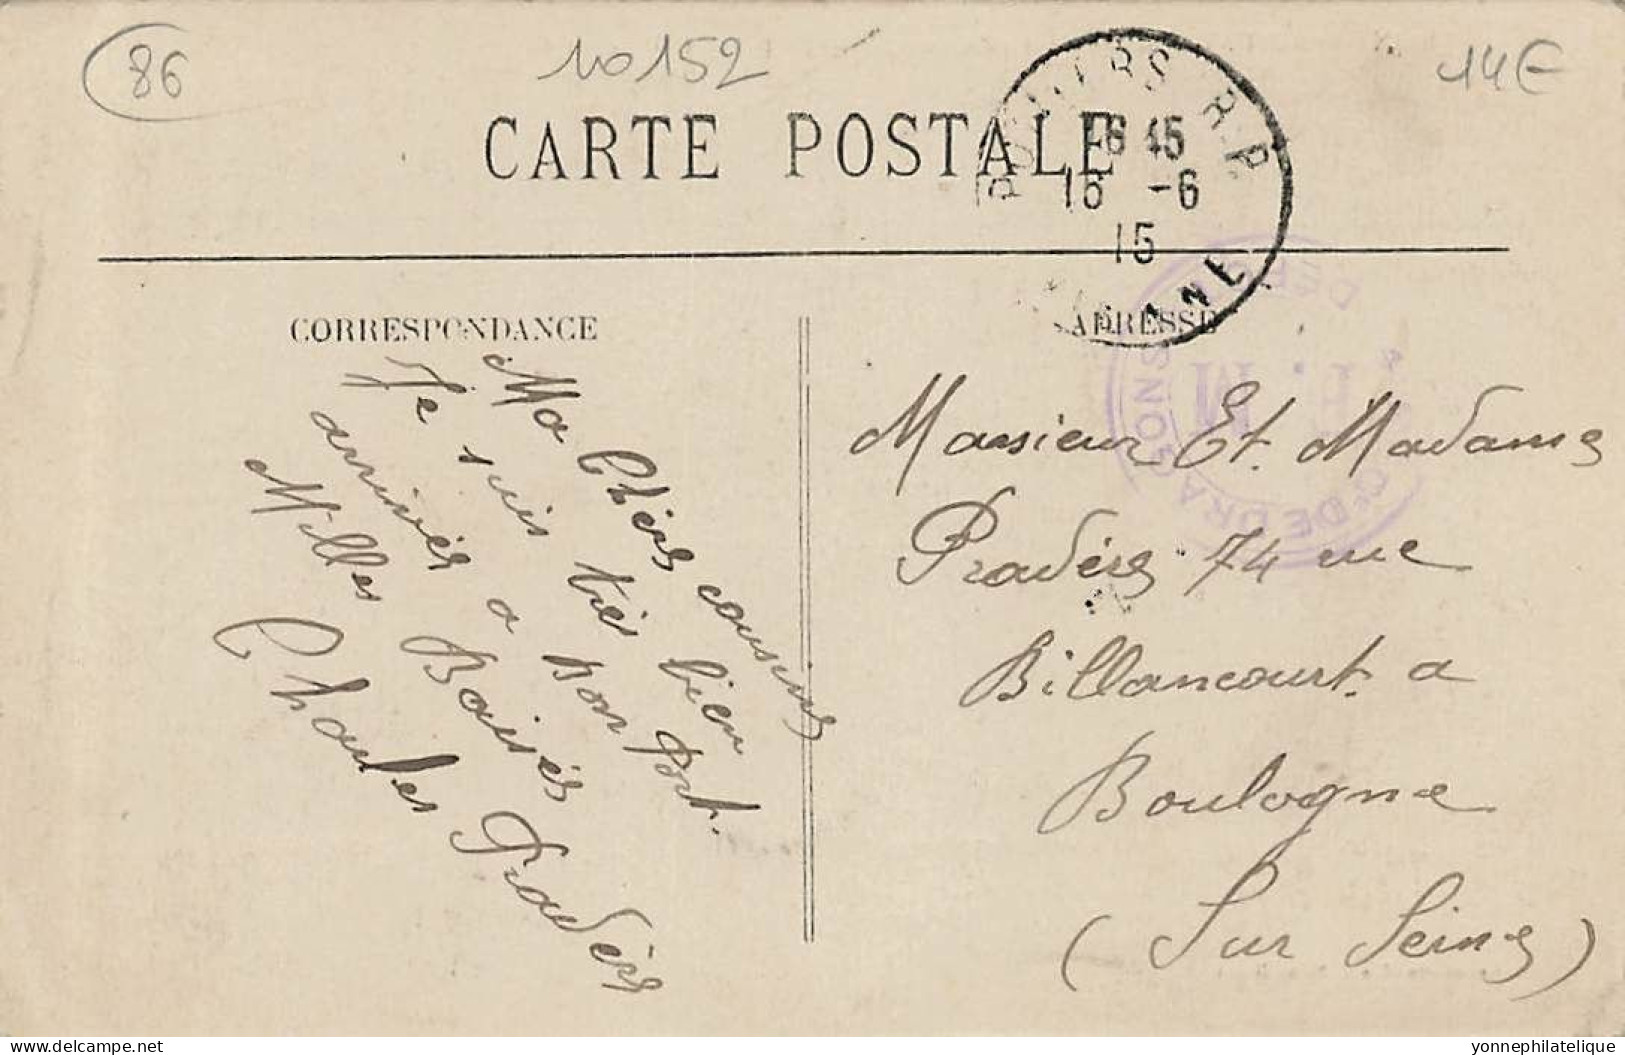 86
no 152
14€
CARTE POSTALE
POITIERS R.P
16 45
15 -6
15
VIENNE
CORRESPONDANCE
ADRESSE
DE DRAGONS
F. M
Ma Chers cousins
Je suis très bien
arrivés a bon Port.
Milles Baisés
Charles Pradère
Monsieur Et. Madame
Pradère 74 rue
Billancourt. a
Boulogne
(Sur Seine)
yonnephilatelique